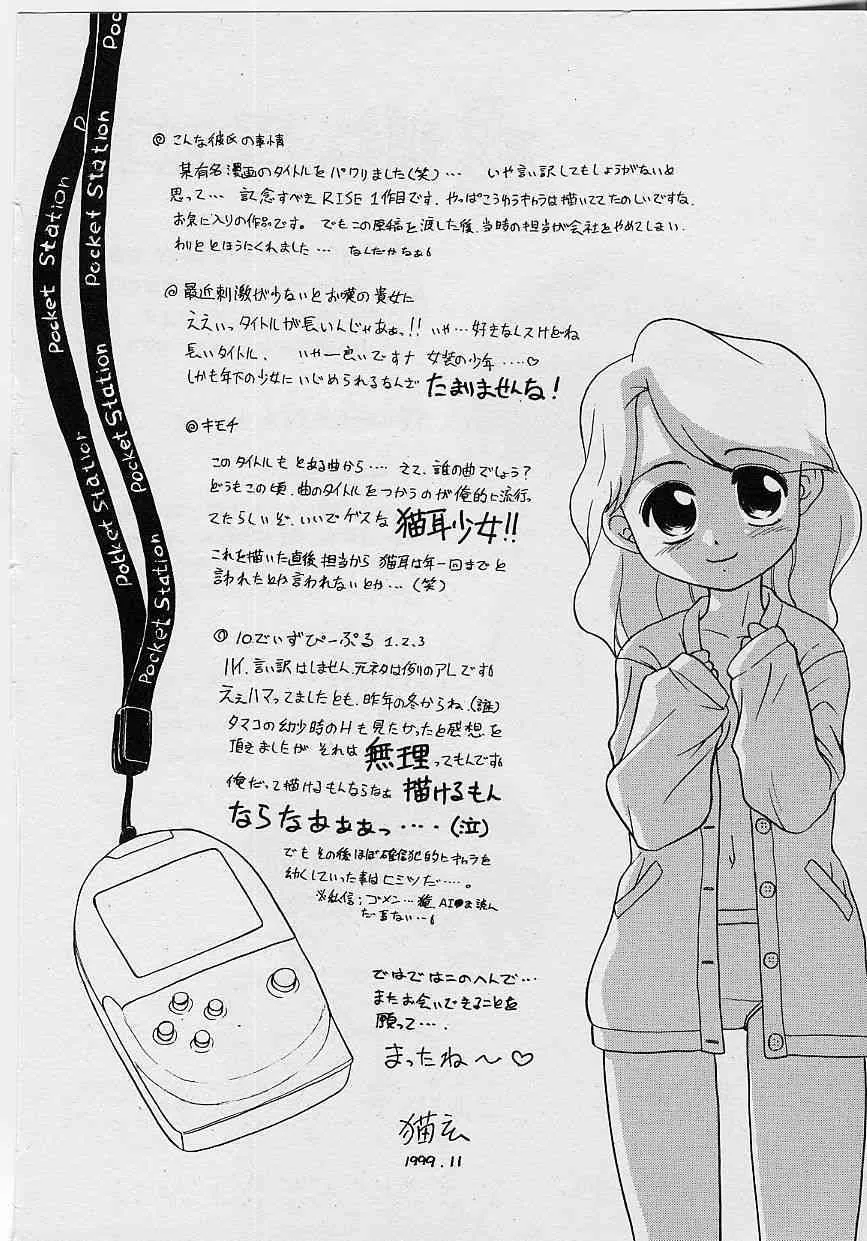 Pocket Station
Pocket Station
Pocket Station
Pocket Station
Pocket Station
Pocket Station
◎こんな彼氏の事情
某有名漫画のタイトルをパクりました(笑)… いや言い訳してもしょうがないと
思って… 記念すべきRISE 1作目です。やっぱこうゆうキャラは描いててたのしいですな。
お気に入りの作品です。でもこの原稿を渡した後、当時の担当が会社をやめてしまい、
わりととほうにくれました… なんだかなぁ。
◎最近刺激が少ないとお嘆の貴女に
ええいっタイトルが長いんじゃあぁっ!! いや…好きなんスけどね
長いタイトル、 いやー良いですナ 女装の少年……♡
しかも年下の少女にいじめられるなんざ たまりませんな!
◎キモチ
このタイトルも とある曲から…… さて、誰の曲でしょう?
どうもこの頃、曲のタイトルをつかうのが俺的に流行っ
てたらしいぞ、いいでゲスな 猫耳少女!!
これを描いた直後 担当から 猫耳は年一回までと
言われたとか言われないとか…(笑)
◎10でいずぴーぷる 1.2.3
ハイ、言い訳はしません、元ネタは例のアレです。
ええハマってましたとも、昨年の冬からね。(謎)
タマコの幼少時のHも見たかったと感想を
頂きましたが それは 無理ってもんです。
俺だって描けるもんならなぁ 描けるもん
ならなぁぁぁっ‥‥(泣)
でも その後ほぼ確信犯的にキャラを
幼くしていった事はヒミツだ……。
※私信;ゴメン…俺、AI●まだ読ん
ではでは このへんで…
またお会いできることを
願って….
まったね〜♡
猫玄
1999.11